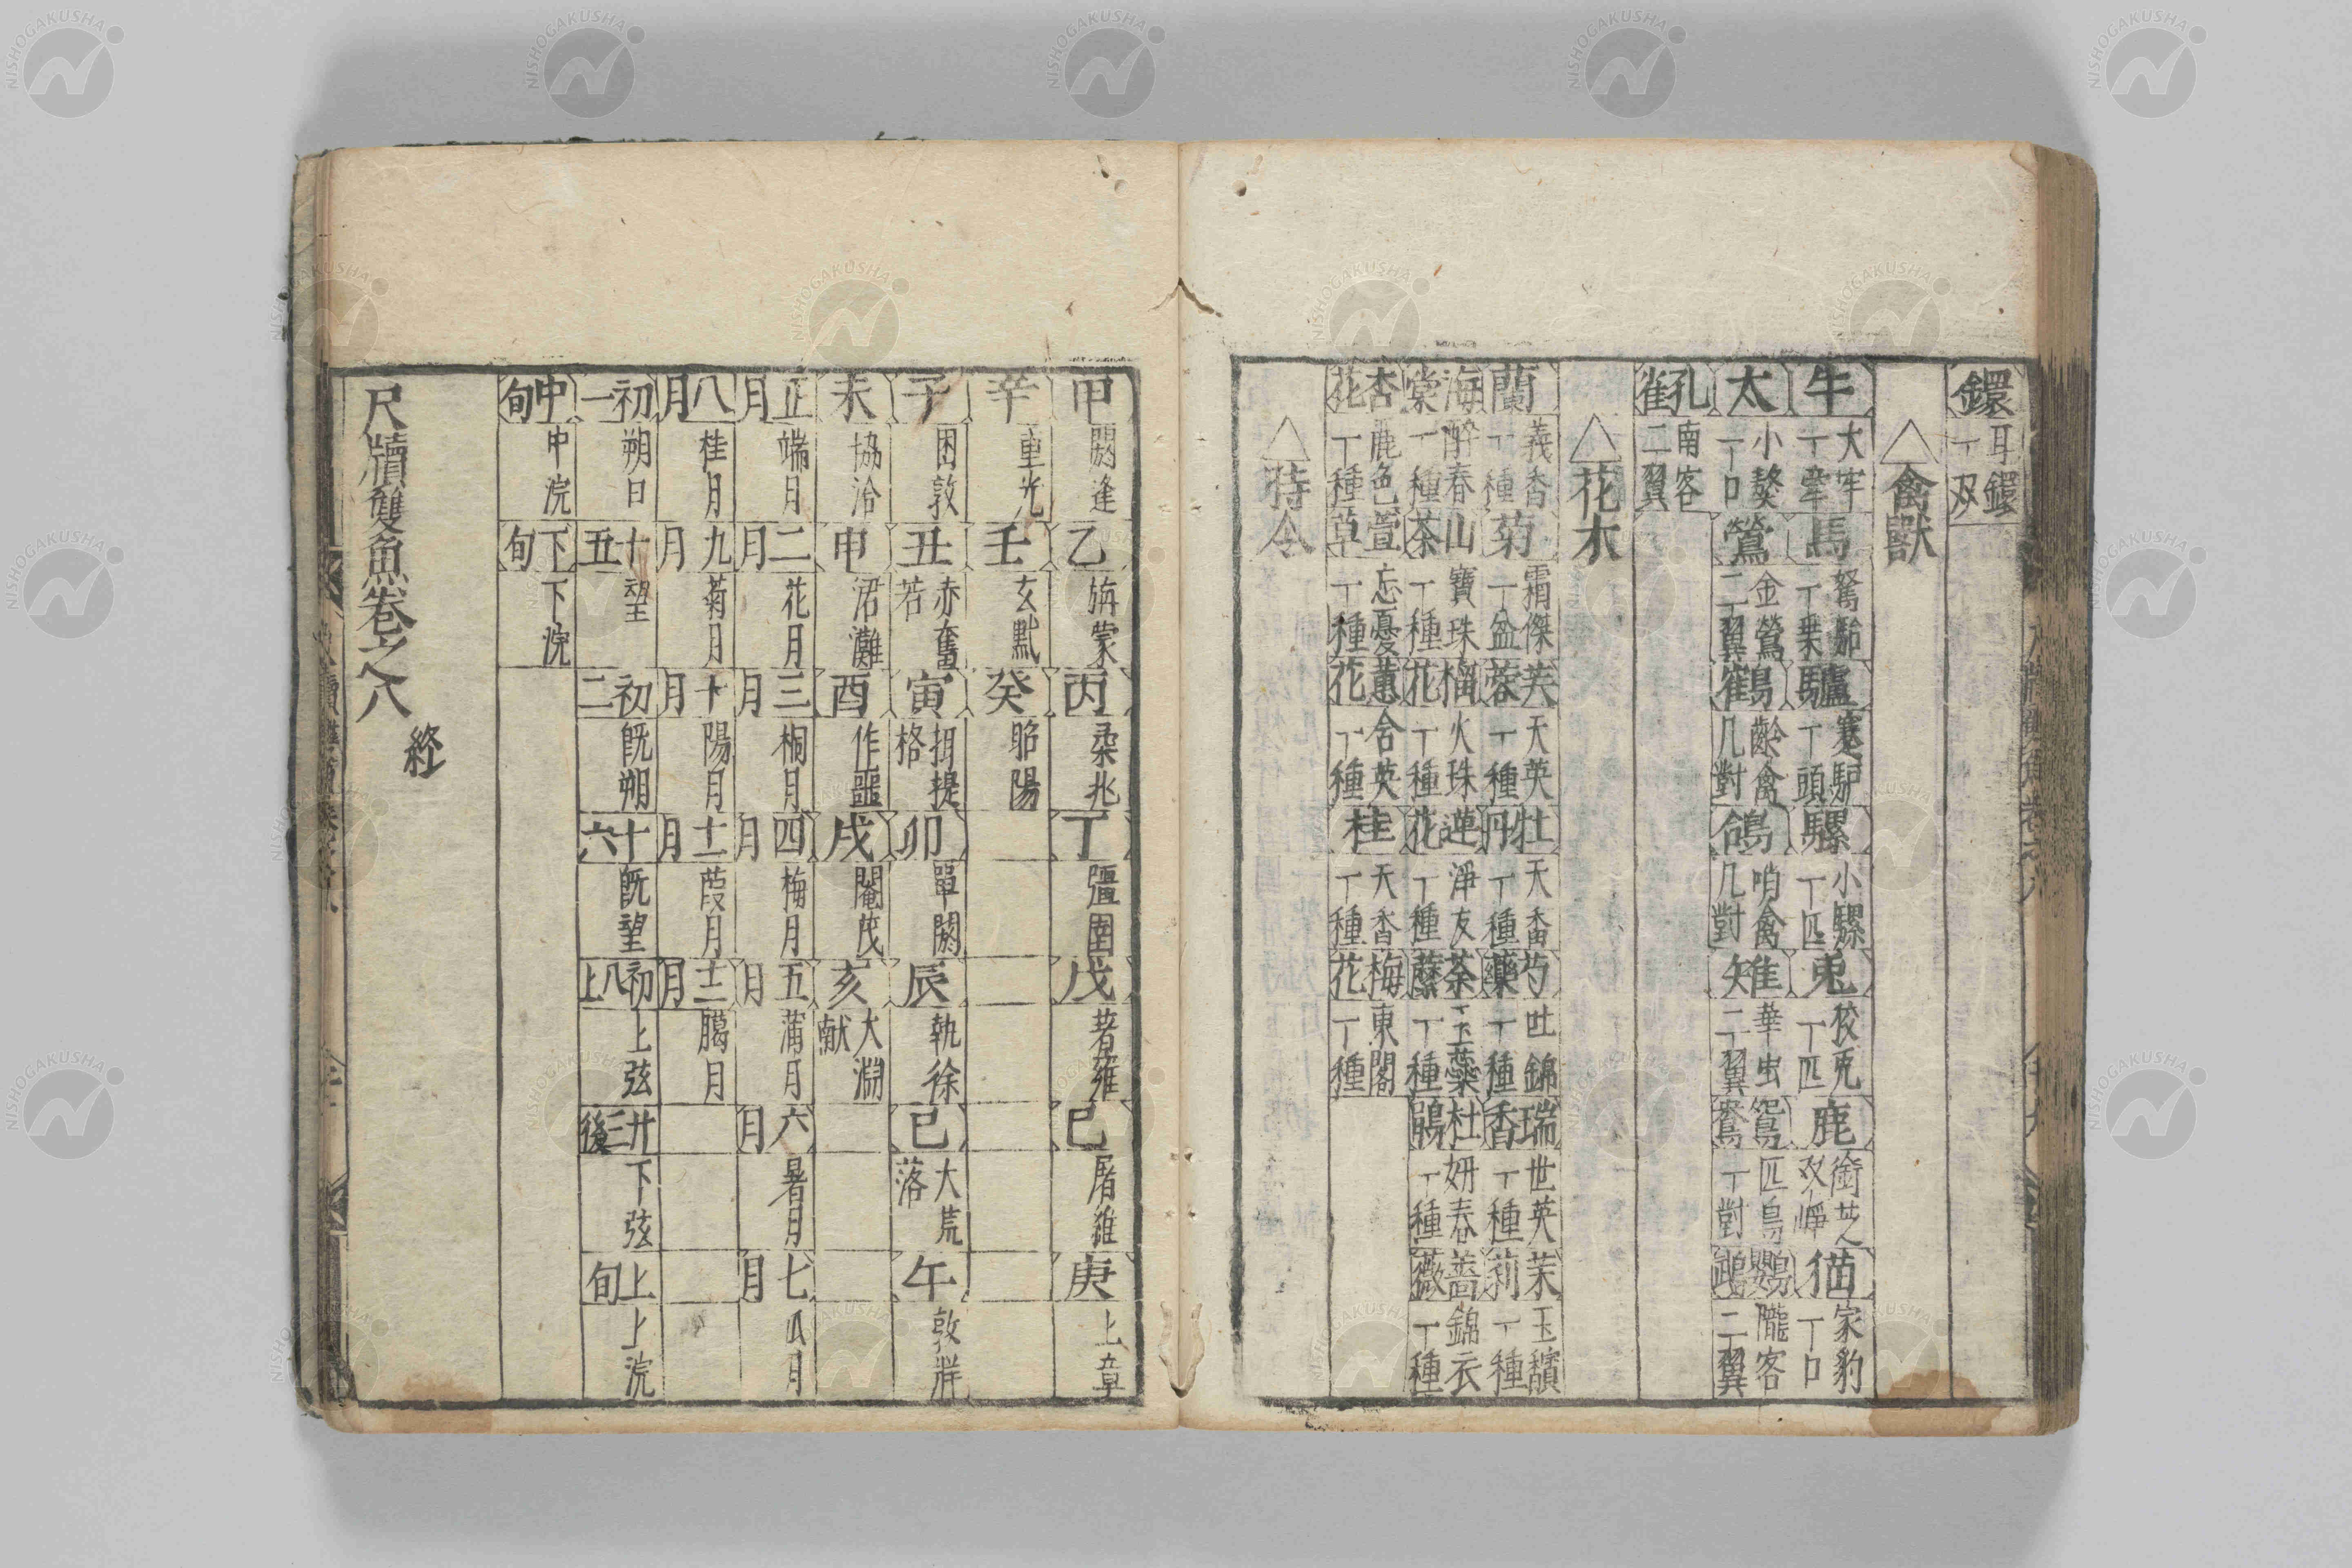 鐶 耳鐶 一双
△禽獸
牛 大牢 一牽 馬 駑駘 一乗 驢 蹇馿 一頭 騾 小騾 一匹 兎 狡兎 一匹 鹿 銜芝 猫 家豹 一口
太 小獒 一口 鶯 金鶯 二翼 鶴 齡禽 几對 鴿 哨禽 几對 雉 華虫 二翼 鴛鴦 匹鳥 一對 鸚鵡 隴客 二翼
孔雀 南客 二翼
△花木
蘭 義香 一種 菊 霜傑 一盆 芙蓉 天英 一種 牡丹 天香 一種 芍藥 吐錦 一種 瑞香 世英 一種 茉莉 玉 一種
海棠 醉春 一種 山茶 寶珠 一種 榴花 火珠 一種 蓮花 淨友 一種 荼蘼 玉蘂 一種 杜鵑 妍春 一種 薔薇 錦衣 一種
杏花 鹿色 一種 萱草 忘憂 一種 蕙花 合英 一種 桂 天香 一種 梅花 東閣 一種
△時令
甲 閼逢 乙 旃蒙 丙 柔兆 丁 彊圉 戊 著雍 己 屠維 庚 上章
辛 重光 壬 玄黓 癸 昭陽
子 困敦 丑 赤奮若 寅 攝提格 卯 單閼 辰 執徐 巳 大荒落 午 敦牂
未 協洽 申 涒灘 酉 作噩 戌 閹茂 亥 大淵献
正月 端月 二月 花月 三月 桐月 四月 梅月 五月 蒲月 六月 暑月 七月 瓜月
八月 桂月 九月 菊月 十月 陽月 十一月 葭月 十二月 臈月
初一 朔日 十五 望 初二 既朔 十六 既望 初八上 上弦 廿三後 下弦 上旬 上浣
中旬 中浣 下旬 下浣
尺牘雙魚卷之八
終
NISHOGAKUSHA